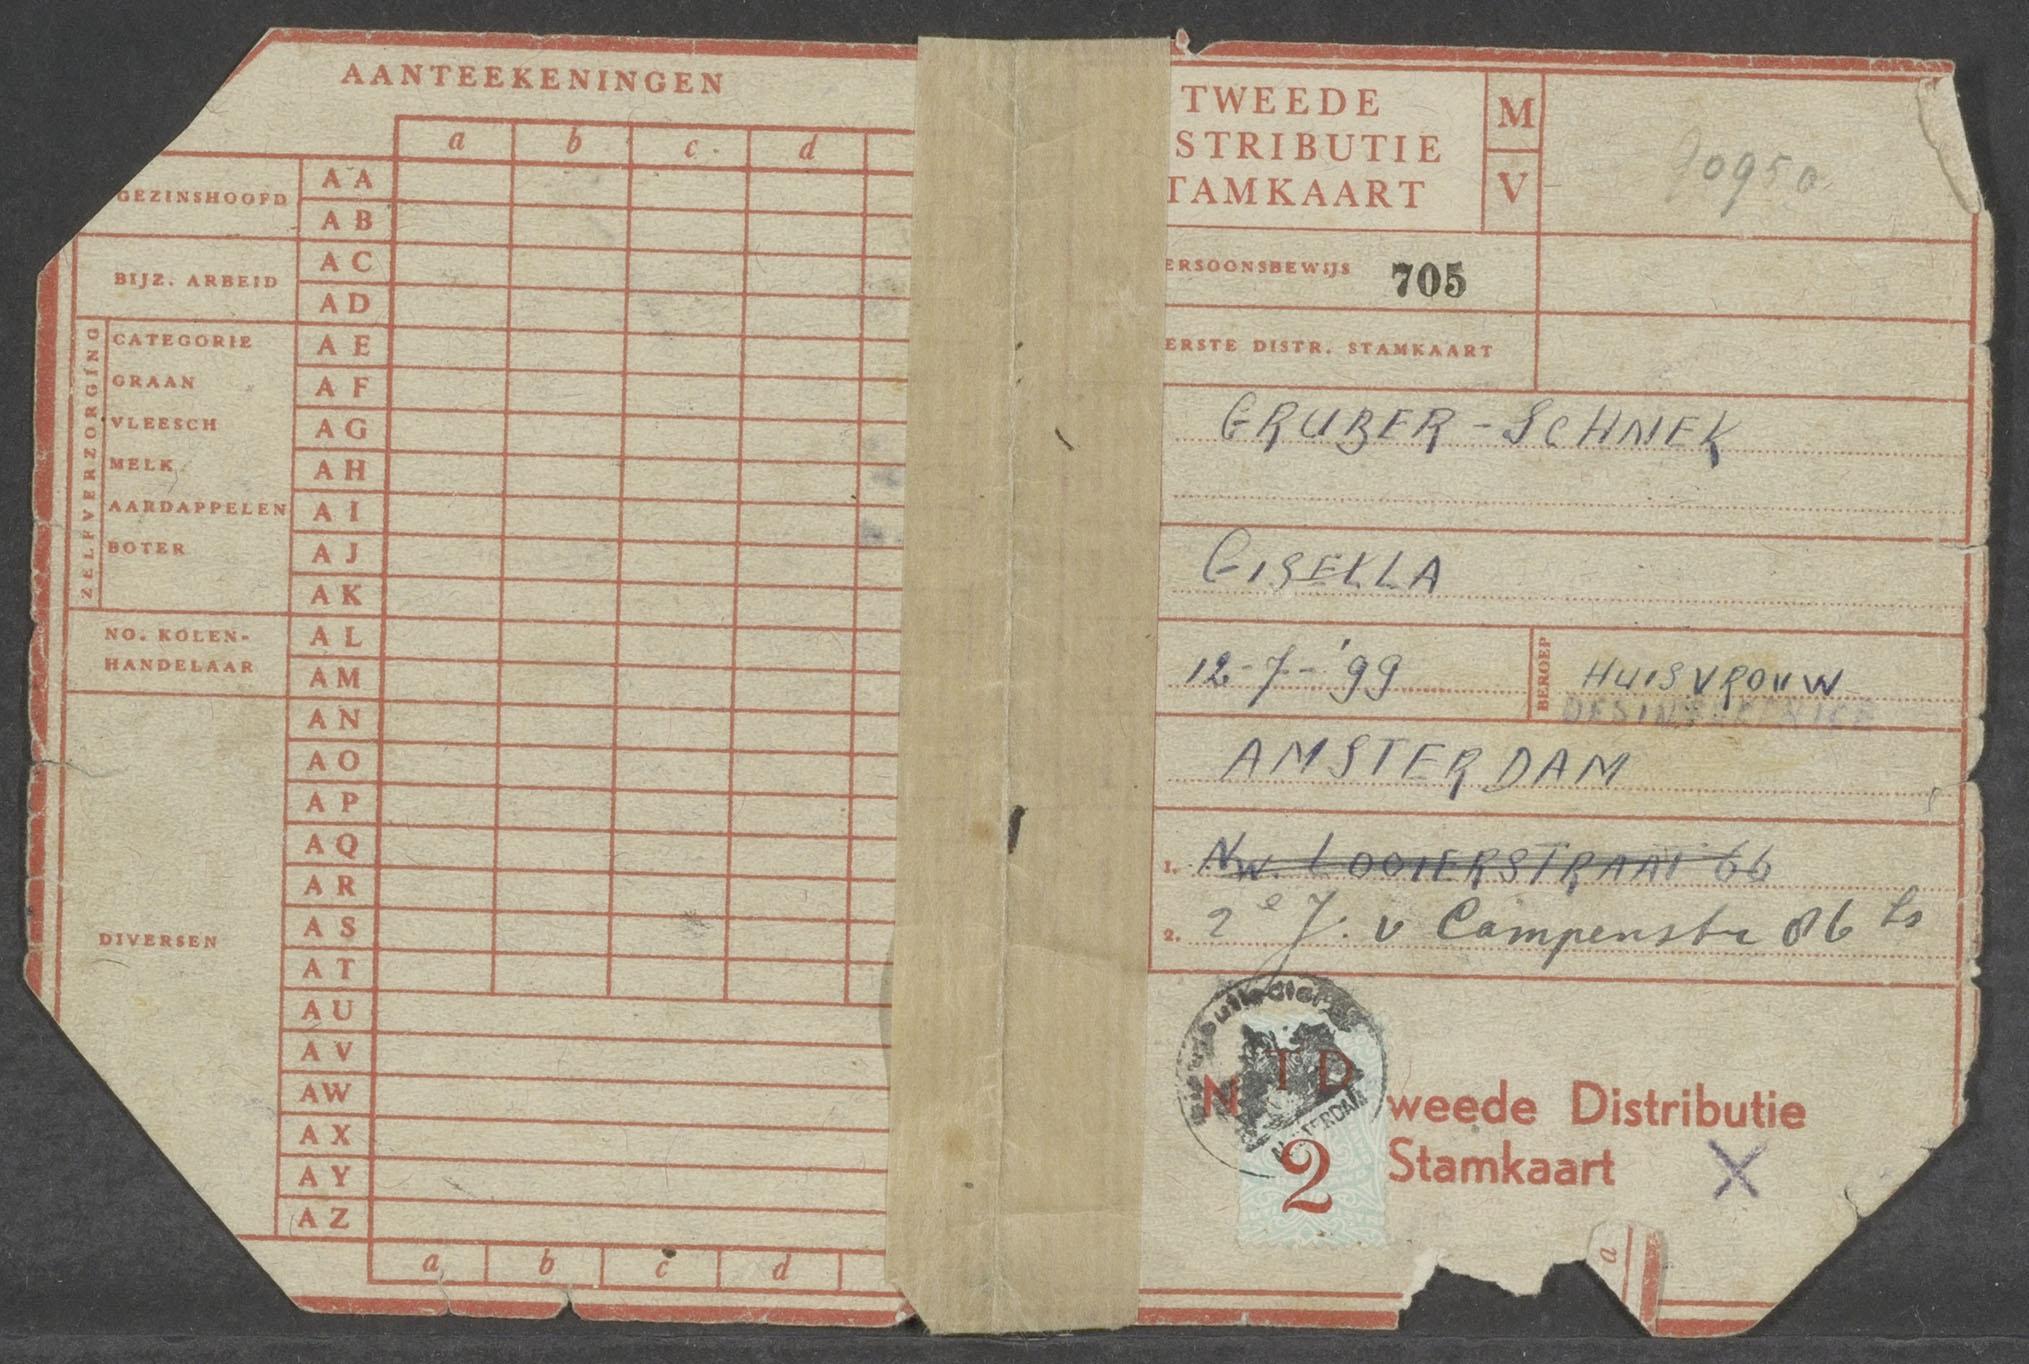 AANTEEKENINGEN
a b c d
GEZINSHOOFD
AA
AB
BIJZ. ARBEID
AC
AD
ZELFVERZORGING
CATEGORIE AE
GRAAN AF
VLEESCH AG
MELK AH
AARDAPPELEN AI
BOTER AJ
AK
NO. KOLEN-
HANDELAAR
AL
AM
AN
AO
AP
AQ
AR
DIVERSEN AS
AT
AU
AV
AW
AX
AY
AZ
a b c d
TWEEDE
STRIBUTIE
TAMKAART
M
V
ERSOONSBEWIJS 705
ERSTE DISTR. STAMKAART
GRUBER-SCHNEK
GISELLA
12-7-'99
BEROEP
HUISVROUW
AMSTERDAM
1. NW. LOOIERSTRAAT 66
2. 2e J. v Campenstr 86 hs
N TD
2
weede Distributie
Stamkaart X
a